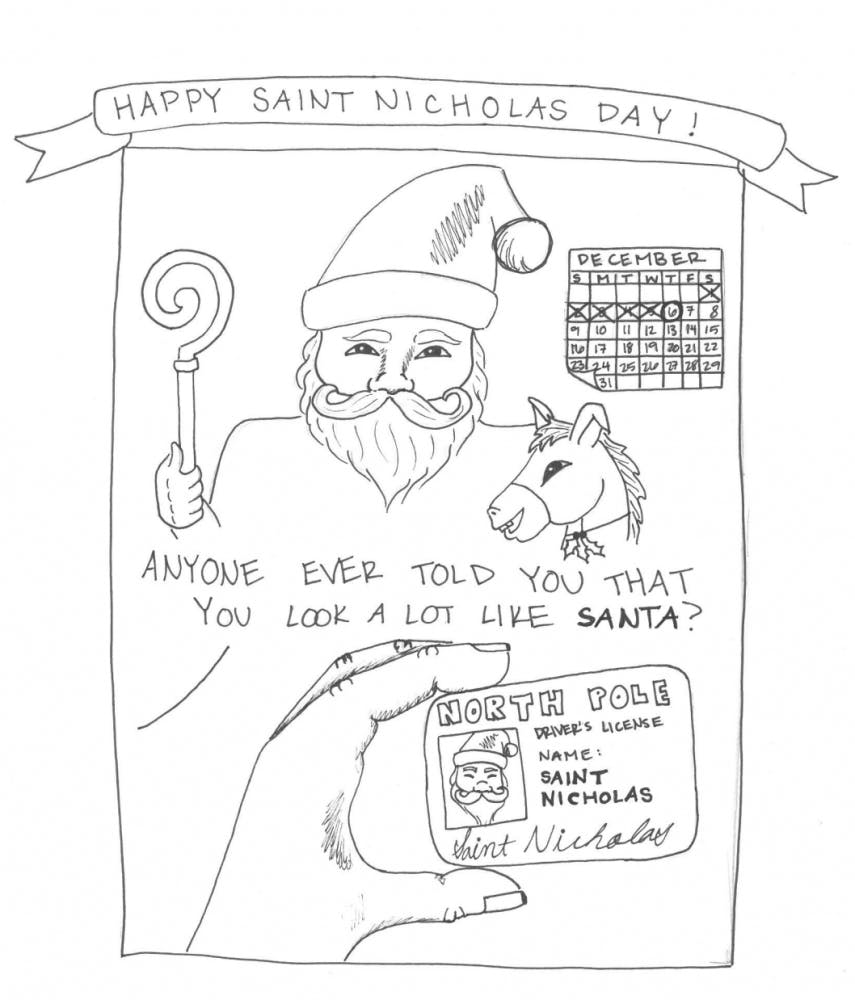 HAPPY SAINT NICHOLAS DAY!
DECEMBER
S M T W T F S
1
2 3 4 5 6 7 8
9 10 11 12 13 14 15
16 17 18 19 20 21 22
23 24 25 26 27 28 29
31
ANYONE EVER TOLD YOU THAT
YOU LOOK A LOT LIKE SANTA?
NORTH POLE
DRIVER'S LICENSE
NAME:
SAINT
NICHOLAS
Saint Nicholas